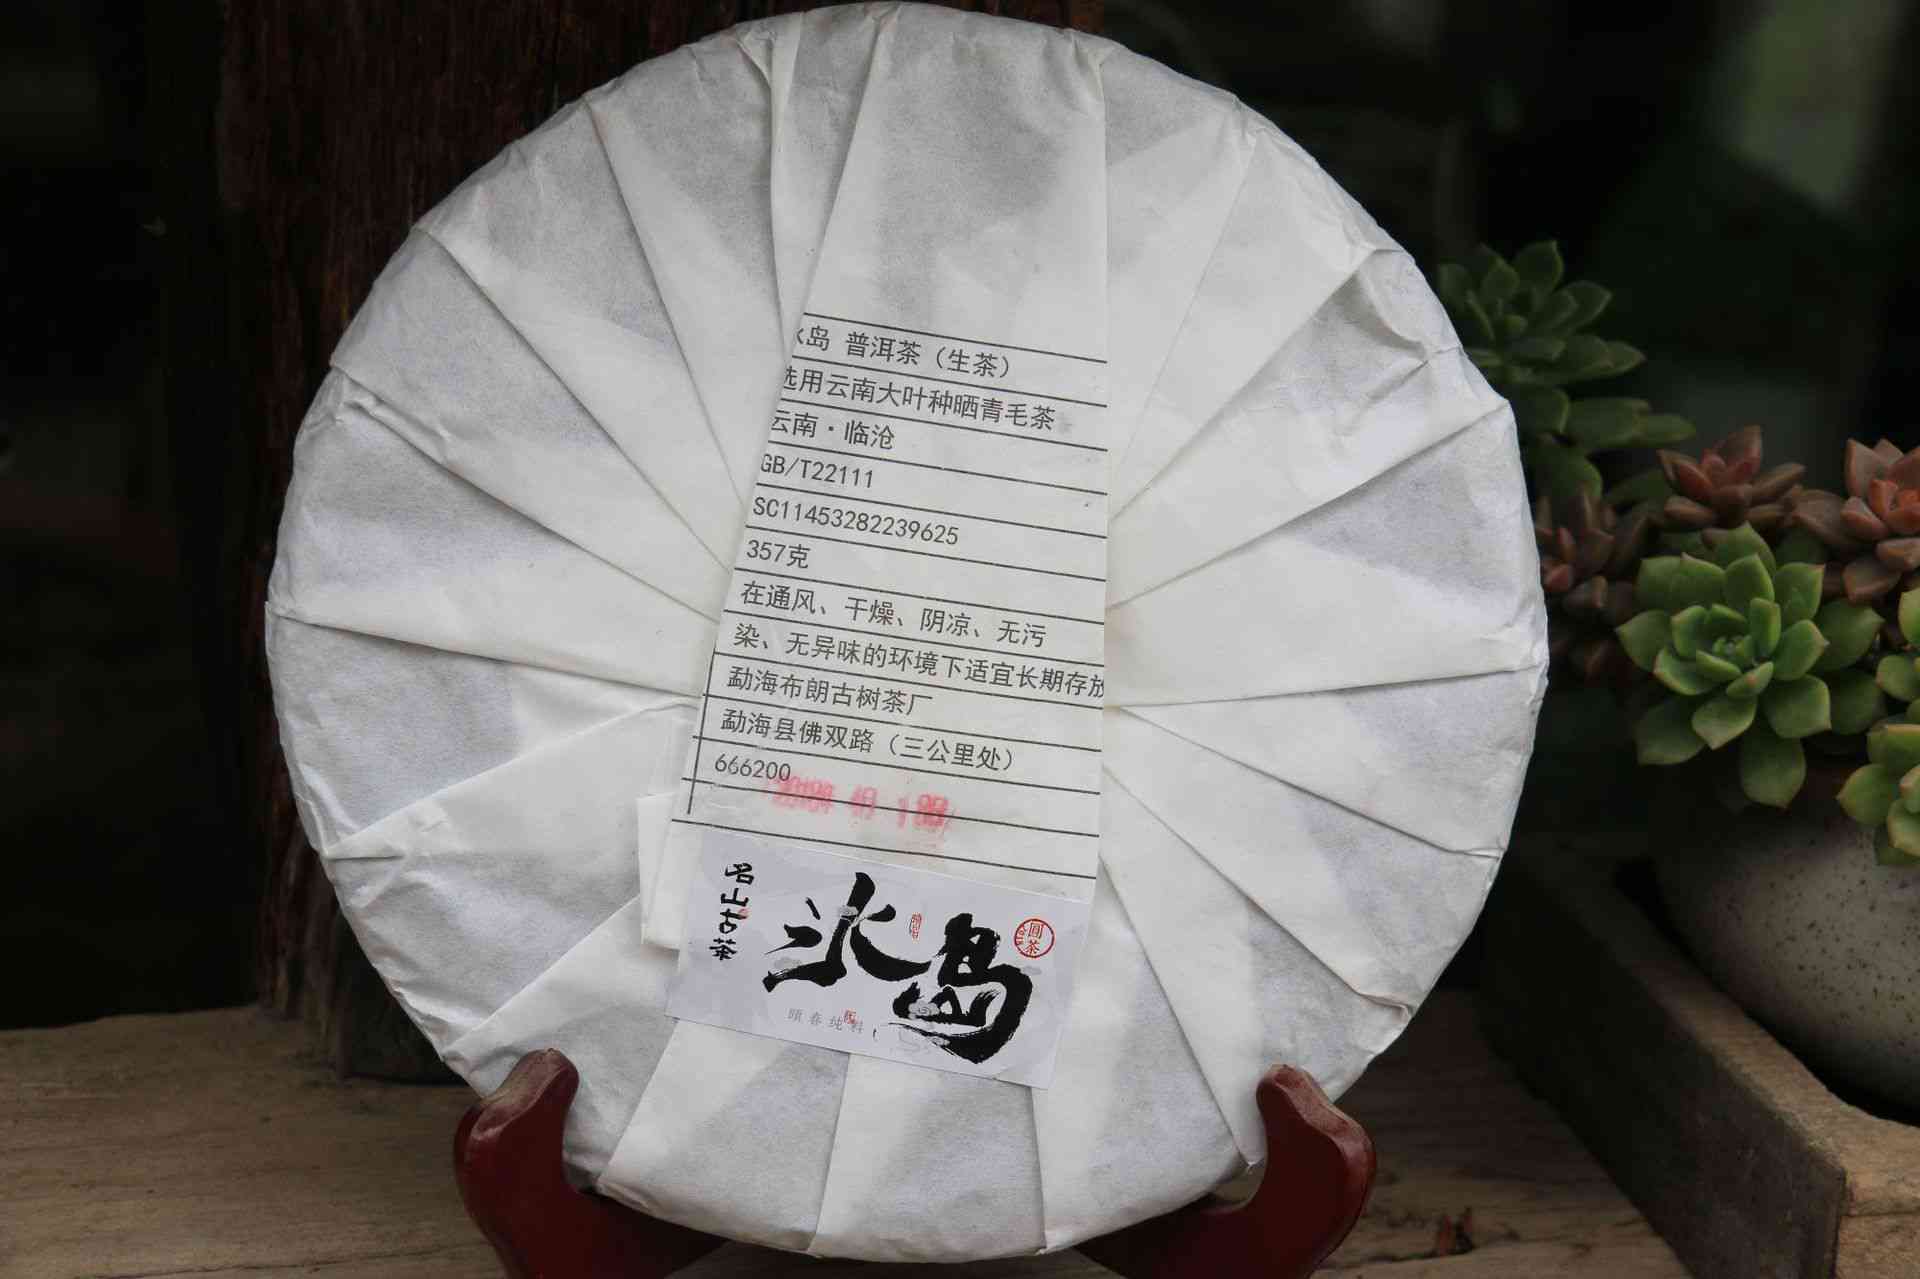 岛 普洱茶（生茶）
选用云南大叶种晒青毛茶
云南·临沧
GB/T22111
SC11453282239625
357克
在通风、干燥、阴凉、无污
染、无异味的环境下适宜长期存放
勐海布朗古树茶厂
勐海县佛双路（三公里处）
666200
名山古茶
冰岛
圆茶
颐春纯料